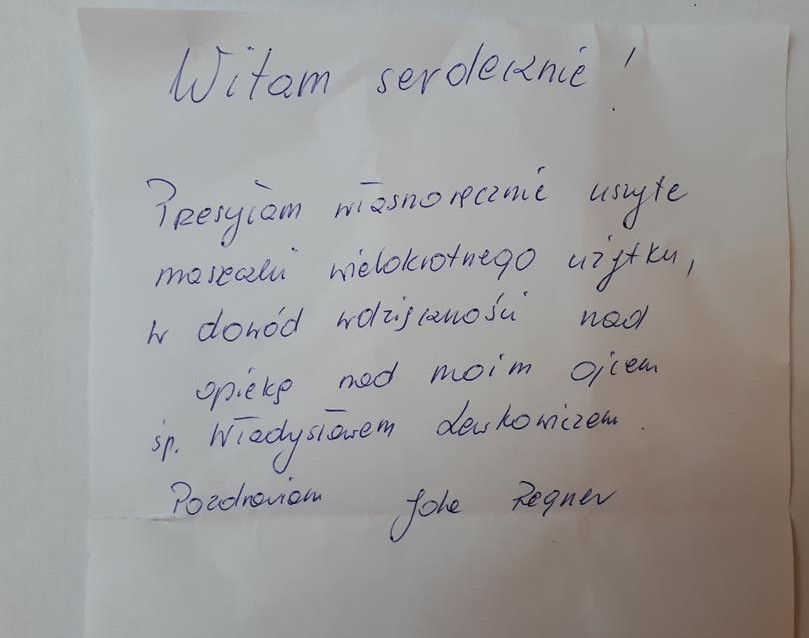 Witam serdecznie!
Przesyłam własnoręcznie uszyte
maseczki wielokrotnego użytku,
w dowód wdzięczności nad
opiekę nad moim ojcem
śp. Władysławem Lewkowiczem.
Pozdrawiam Jola Regner